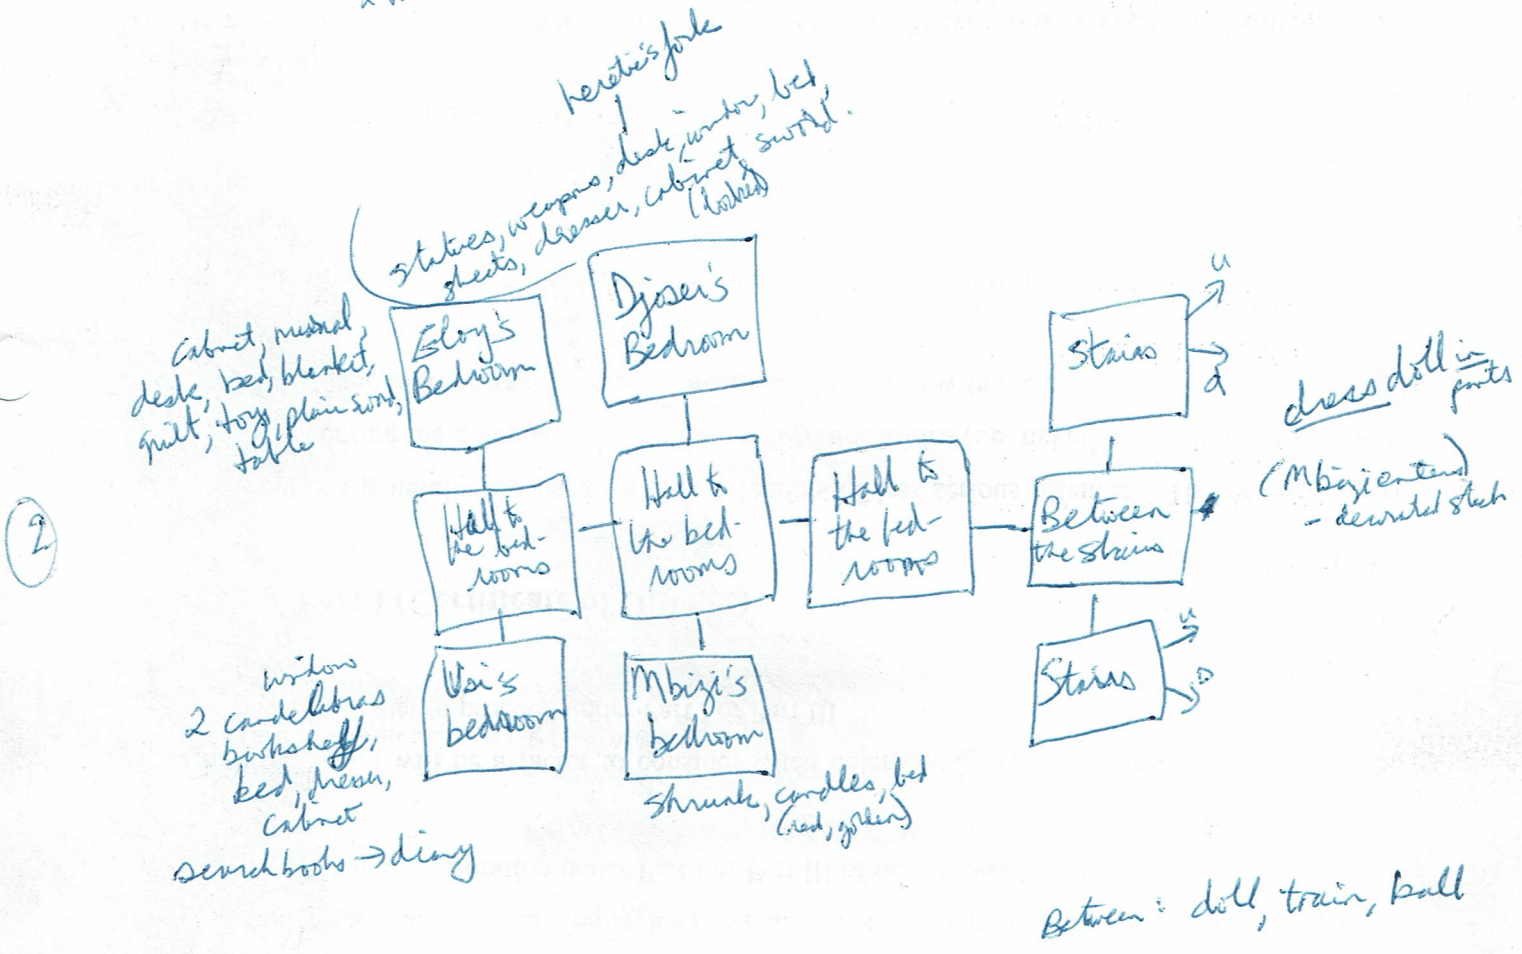 heretic's fork
statues, weapons, desk, window, bed,
sheets, dresser, cabinet, sword.
(locked)
Cabinet, mural,
desk, bed, blanket,
quilt, toys, plain sword,
table
Eloy's
Bedroom
Djoser's
Bedroom
Stairs
u
d
dress doll in
parts
(Mbizi enters)
- decorated
2
Hall to
the bed-
rooms
Hall to
the bed-
rooms
Hall to
the bed-
rooms
Between
the stairs
window
2 candelabras
bookshelf,
bed, dresser,
cabinet
search books → diary
bedroom
Mbizi's
bedroom
Shrunk, candles, bed
(red, golden)
Stairs
u
D
Between: doll, train, ball